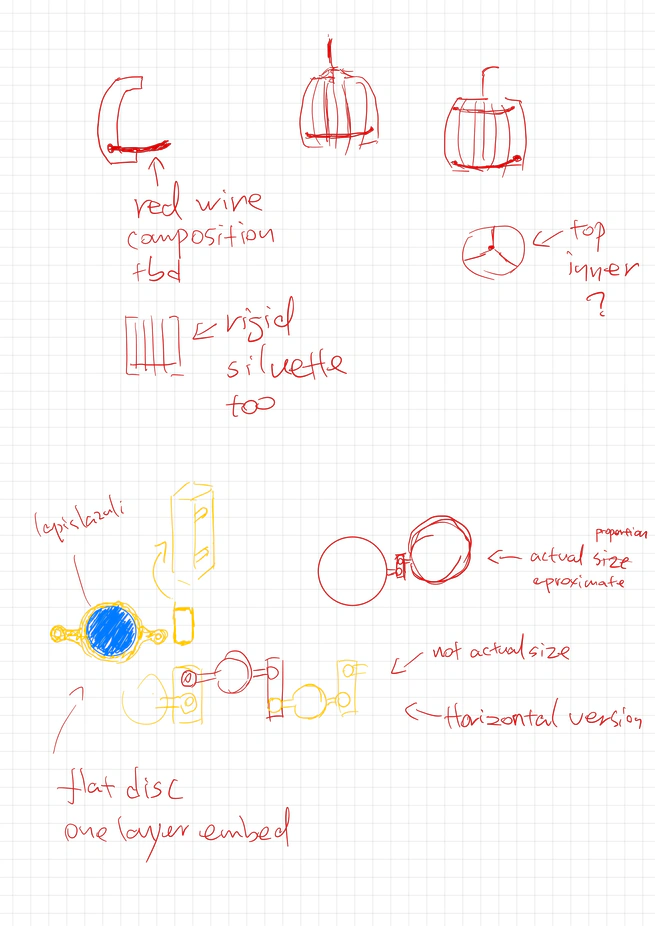 red wine
composition
tbd
top
inner
?
rigid
siluette
too
lapislazuli
proportion
actual size
aproximate
not actual size
Horizontal version
flat disc
one layer embed